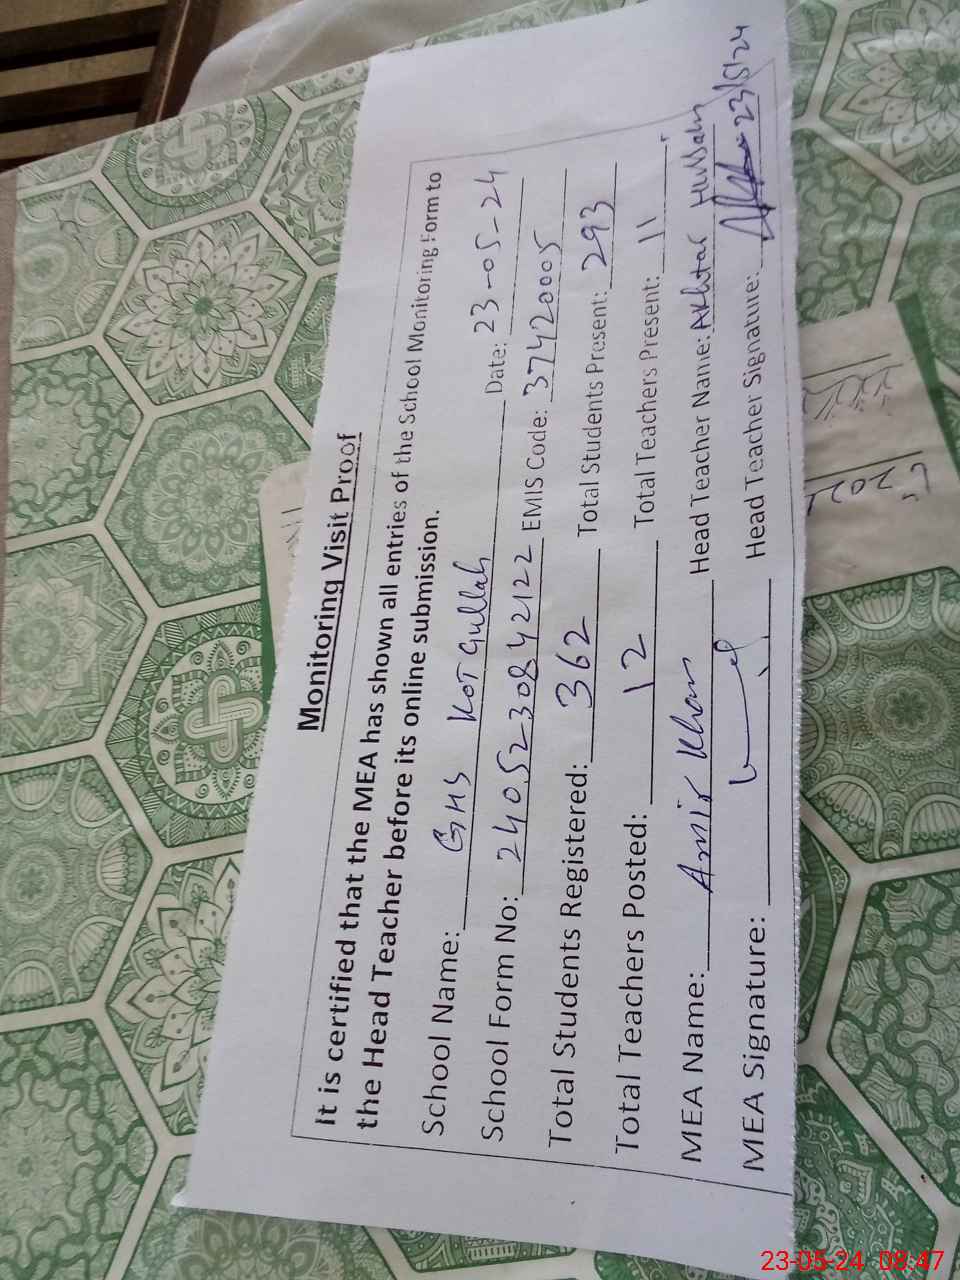 Monitoring Visit Proof
It is certified that the MEA has shown all entries of the School Monitoring Form to
the Head Teacher before its online submission.
School Name: GHS Kot Gullah Date: 23-05-24
School Form No: 2405230842122 EMIS Code: 37420005
Total Students Registered: 362 Total Students Present: 293
Total Teachers Posted: 12 Total Teachers Present: 11
MEA Name: Amir Khan Head Teacher Name: Akhtar Hussain
MEA Signature: Head Teacher Signature: 23/5/24
23-05-24 08:47